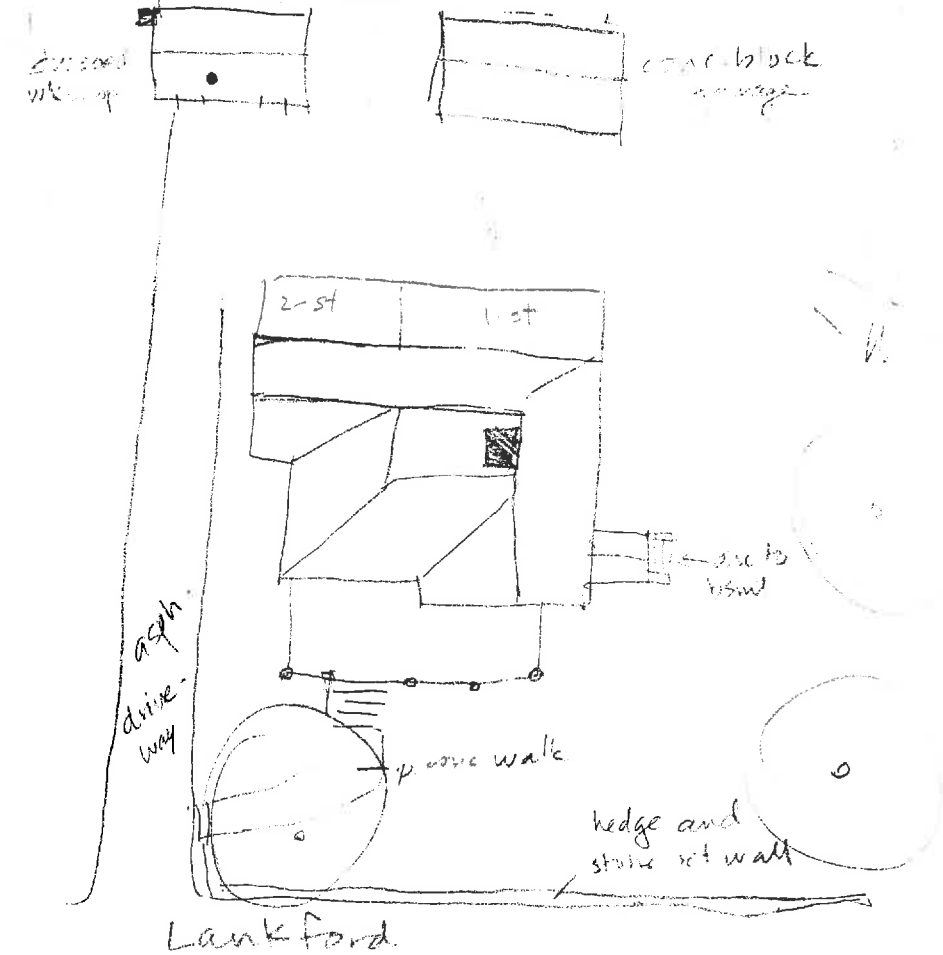 conc block
2-st
1-st
acc to
bsmt
asph
drive-
way
walk
hedge and
stone ret wall
Lankford